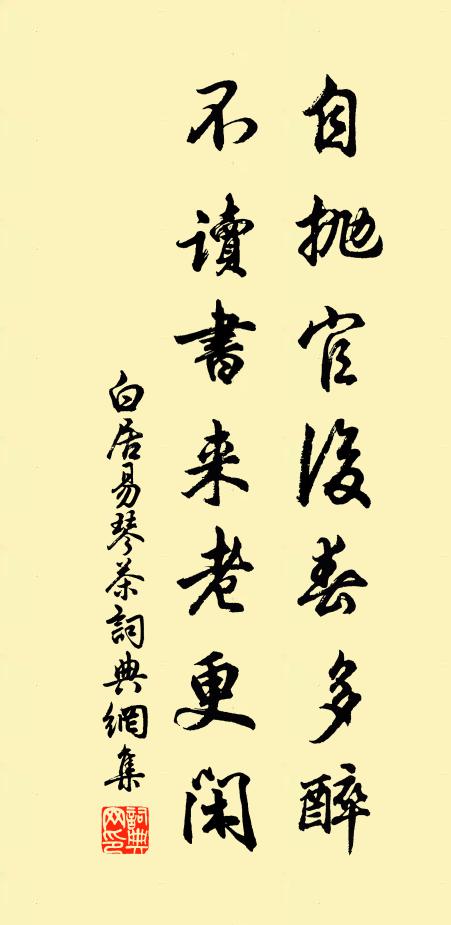 自抛官後春多醉
不讀書来老更闲
白居易琴茶詞典網集
詞典网印